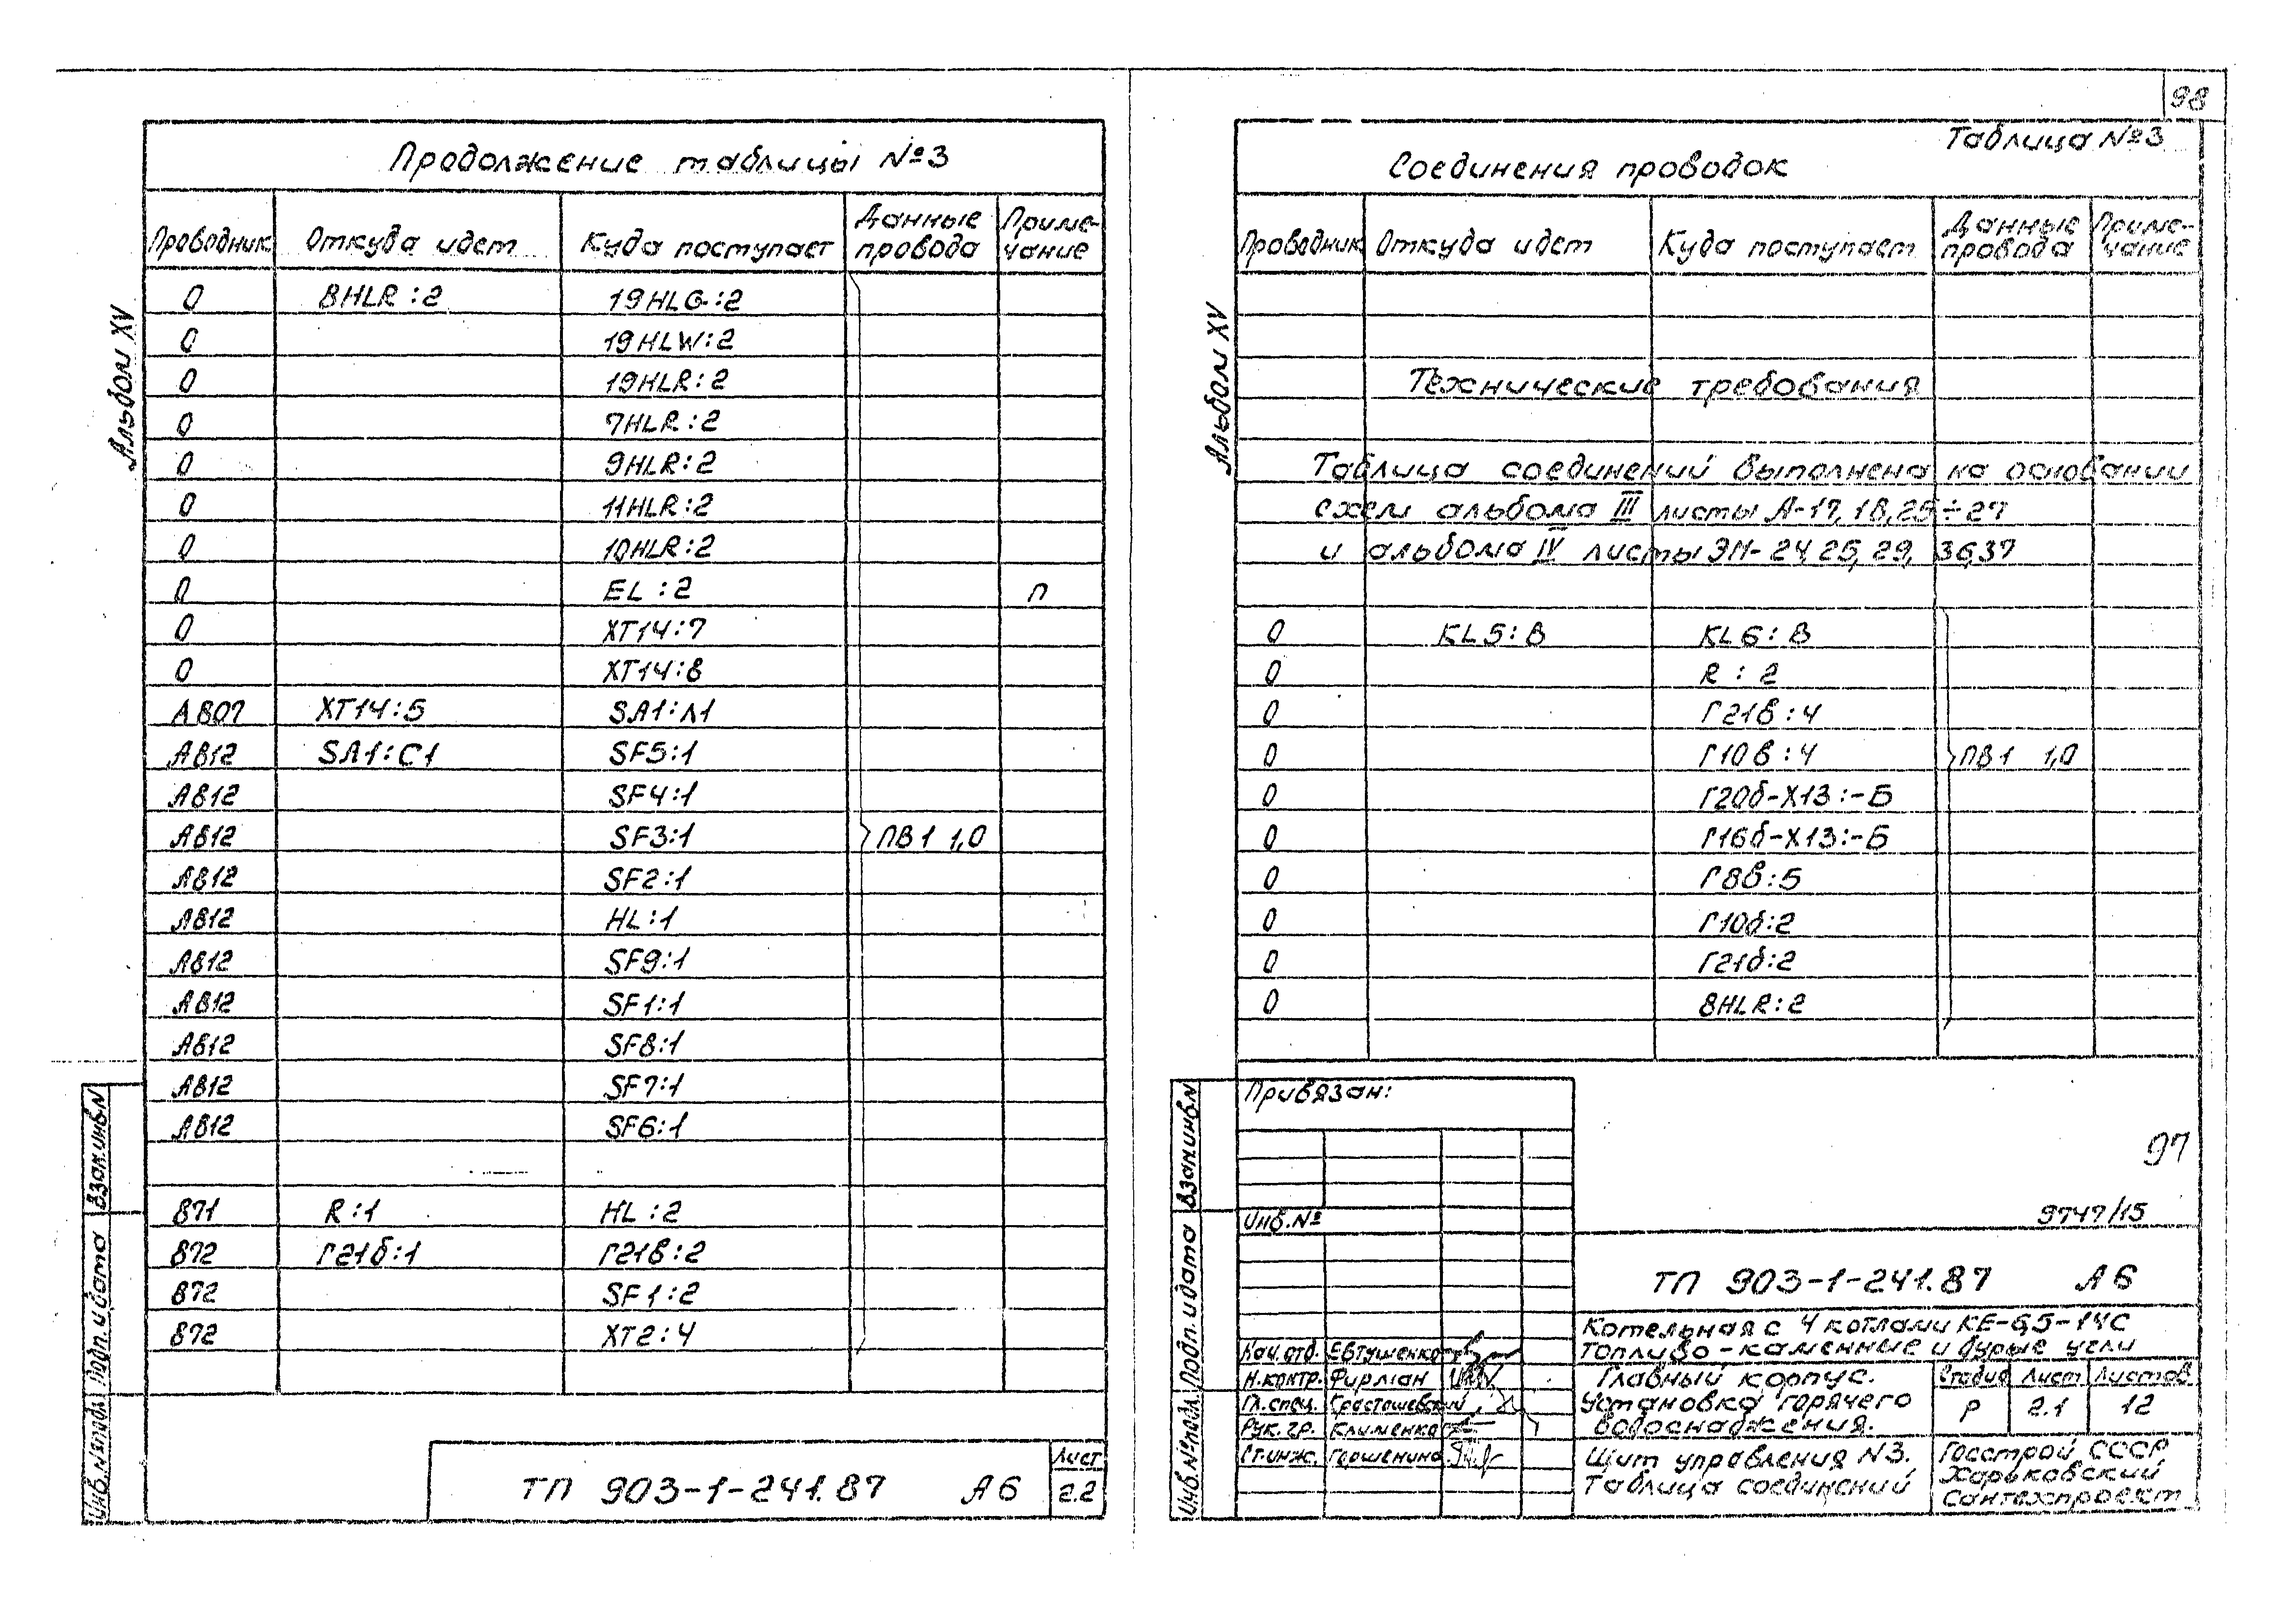 98
Продолжение таблицы №3
Проводник Откуда идет Куда поступает Данные провода Приме-чание
0 8HLR:2 19HLG:2
0 19HLW:2
0 19HLR:2
0 7HLR:2
0 9HLR:2
0 11HLR:2
0 10HLR:2
0 EL:2 п
0 XT14:7
0 XT14:8
А807 XT14:5 SA1:Л1
А812 SA1:C1 SF5:1
А812 SF4:1
А812 SF3:1 ПВ1 1,0
А812 SF2:1
А812 HL:1
А812 SF9:1
А812 SF1:1
А812 SF8:1
А812 SF7:1
А812 SF6:1
871 R:1 HL:2
872 Г21б:1 Г21в:2
872 SF1:2
872 XT2:4
Альбом XV
Взам.инв.N
Подп. и дата
Инв.№подл.
ТП 903-1-241.87 А6
Лист
2.2
Таблица №3
Соединения проводок
Проводник Откуда идет Куда поступает Данные провода Приме-чание
Технические требования
Таблица соединений выполнена на основании
схем альбома III листы А-17, 18, 25÷27
и альбома IV листы ЭМ-24, 25, 29, 36,37
0 KL5:8 KL6:8
0 R:2
0 Г21в:4
0 Г10в:4 ПВ1 1,0
0 Г20б-Х13:-Б
0 Г16б-Х13:-Б
0 Г8в:5
0 Г10б:2
0 Г21б:2
0 8HLR:2
Альбом XV
Взам.инв.N
Подп. и дата
Инв.№подл.
Привязан:
Инв.№
97
9747/15
ТП 903-1-241.87 А6
Котельная с 4 котлами КЕ-6,5-14С
Топливо-каменные и бурые угли
Нач.отд. Евтушенко
Н.контр. Фирман
Гл.спец.
Рук.гр. Клименко
Ст.инж. Горшенина
Главный корпус.
Установка горячего
водоснабжения.
Стадия Лист Листов
Р 2.1 12
Щит управления N3.
Таблица соединений
Госстрой СССР
Харьковский
Сантехпроект